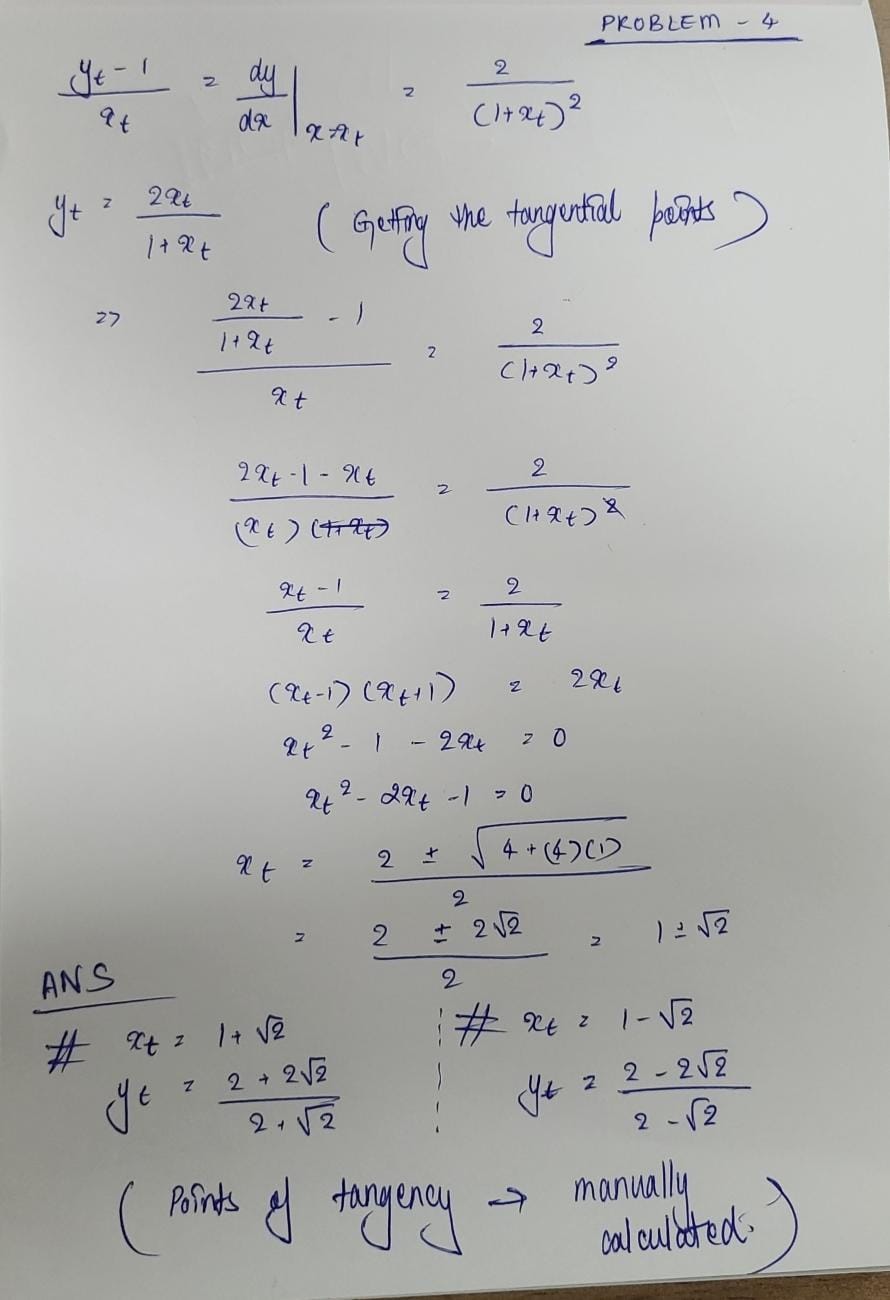 PROBLEM - 4
(y_t - 1)/x_t = dy/dx |_{x=x_t} = 2/(1+x_t)^2
y_t = 2x_t/(1+x_t) (Getting the tangential points)
=> (2x_t/(1+x_t) - 1)/x_t = 2/(1+x_t)^2
(2x_t - 1 - x_t)/((x_t)(1+x_t)) = 2/(1+x_t)^2
(x_t - 1)/x_t = 2/(1+x_t)
(x_t-1)(x_t+1) = 2x_t
x_t^2 - 1 - 2x_t = 0
x_t^2 - 2x_t - 1 = 0
x_t = (2 ± √(4+(4)(1)))/2
= (2 ± 2√2)/2 = 1 ± √2
ANS
# x_t = 1+√2
y_t = (2+2√2)/(2+√2)
# x_t = 1-√2
y_t = (2-2√2)/(2-√2)
(Points of tangency → manually
calculated.)